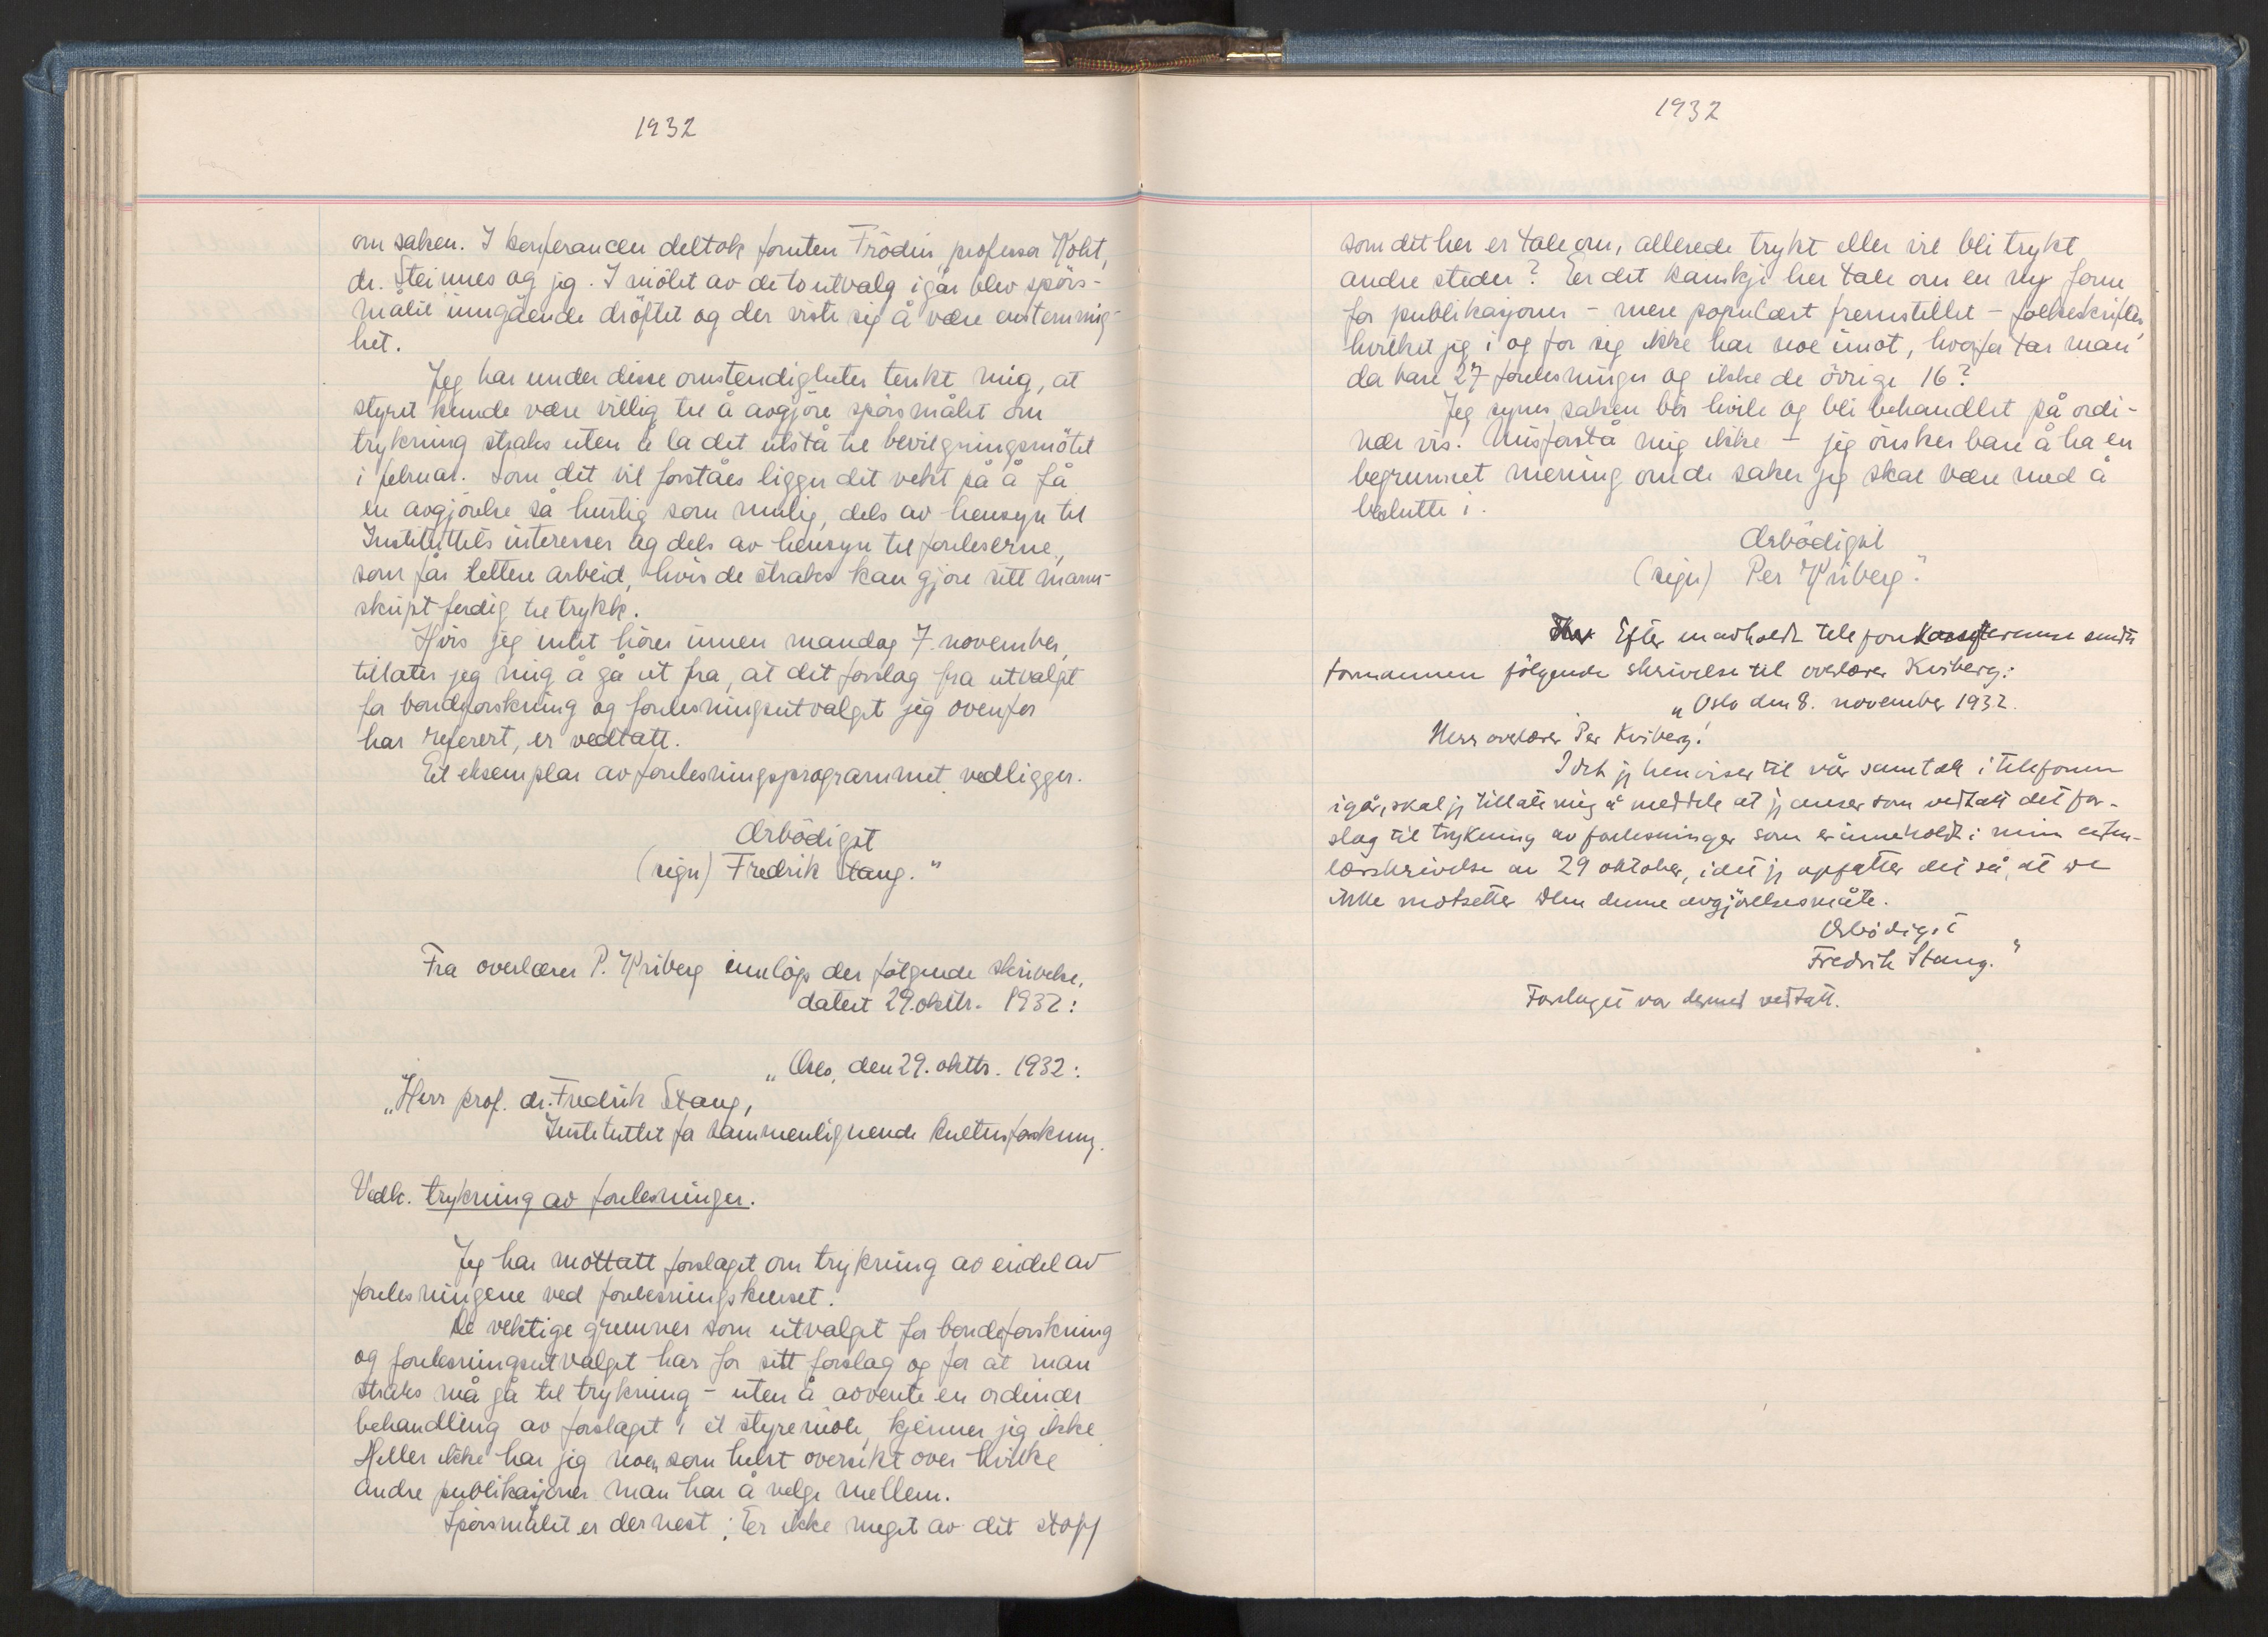 1932
om saken. I konferancen deltok foruten Frödin, professor Koht,
dr. Steinnes og jeg. I mötet av de to utvalg igår blev spörs-
målet inngående dröftet og der viste sig å være enstemmig-
het.
Jeg har under disse omstendigheter tenkt mig, at
styret kunde være villig til å avgjöre spörsmålet om
trykning straks uten å la det utstå til bevilgningsmötet
i februar. Som det vil forståes ligger det vekt på å få
en avgjörelse så hurtig som mulig, dels av hensyn til
Instituttets interesser og dels av hensyn til foreleserne,
som får lettere arbeid, hvis de straks kan gjöre sitt manu-
skript ferdig til trykk.
Hvis jeg intet hörer innen mandag 7. november,
tillater jeg mig å gå ut fra, at det forslag fra utvalget
for bondeforskning og forelesningsutvalget jeg ovenfor
har referert, er vedtatt.
Et eksemplar av forelesningsprogrammet vedligger.
Ærbödigst
(sign) Fredrik Stang."
Fra overlærer P. Kviberg innlöp der fölgende skrivelse,
datert 29. oktbr. 1932:
„Oslo, den 29. oktbr. 1932:
„Herr prof. dr. Fredrik Stang,
Instituttet for sammenlignende kulturforskning.
Vedk. trykning av forelesninger.
Jeg har mottatt forslaget om trykning av endel av
forelesningene ved forelesningskurset.
De vektige grunner som utvalget for bondeforskning
og forelesningsutvalget har for sitt forslag og for at man
straks må gå til trykning - uten å avvente en ordinær
behandling av forslaget i et styremöte, kjenner jeg ikke.
Heller ikke har jeg noen som helst oversikt over hvilke
andre publikasjoner man har å velge mellem.
Spörsmålet er dernest: Er ikke meget av det stoff
1932
som det her er tale om, allerede trykt eller vil bli trykt
andre steder? Er det kanskje her tale om en ny form
for publikasjoner - mere populært fremstillet - folkeskrifter,
hvilket jeg i og for sig ikke har noe imot, hvorfor tar man
da bare 27 forelesninger og ikke de övrige 16?
Jeg synes saken bör hvile og bli behandlet på ordi-
nær vis. Misforstå mig ikke - jeg önsker bare å ha en
begrunnet mening om de saker jeg skal være med å
beslutte i.
Ærbödigst
(sign) Per Kviberg."
Efter innholdt telefonkonferanse sendte
formannen fölgende skrivelse til overlærer Kviberg:
„Oslo den 8. november 1932.
Herr overlærer Per Kviberg!
Idet jeg henviser til vår samtale i telefonen
igår, skal jeg tillate mig å meddele at jeg anser som vedtatt det for-
slag til trykning av forelesninger som er inneholdt i min cirku-
lærskrivelse av 29 oktober, idet jeg opfatter det så, at De
ikke motsetter Dem denne avgjörelsesmåte.
Ærbödigst
Fredrik Stang."
Forslaget var dermed vedtatt.